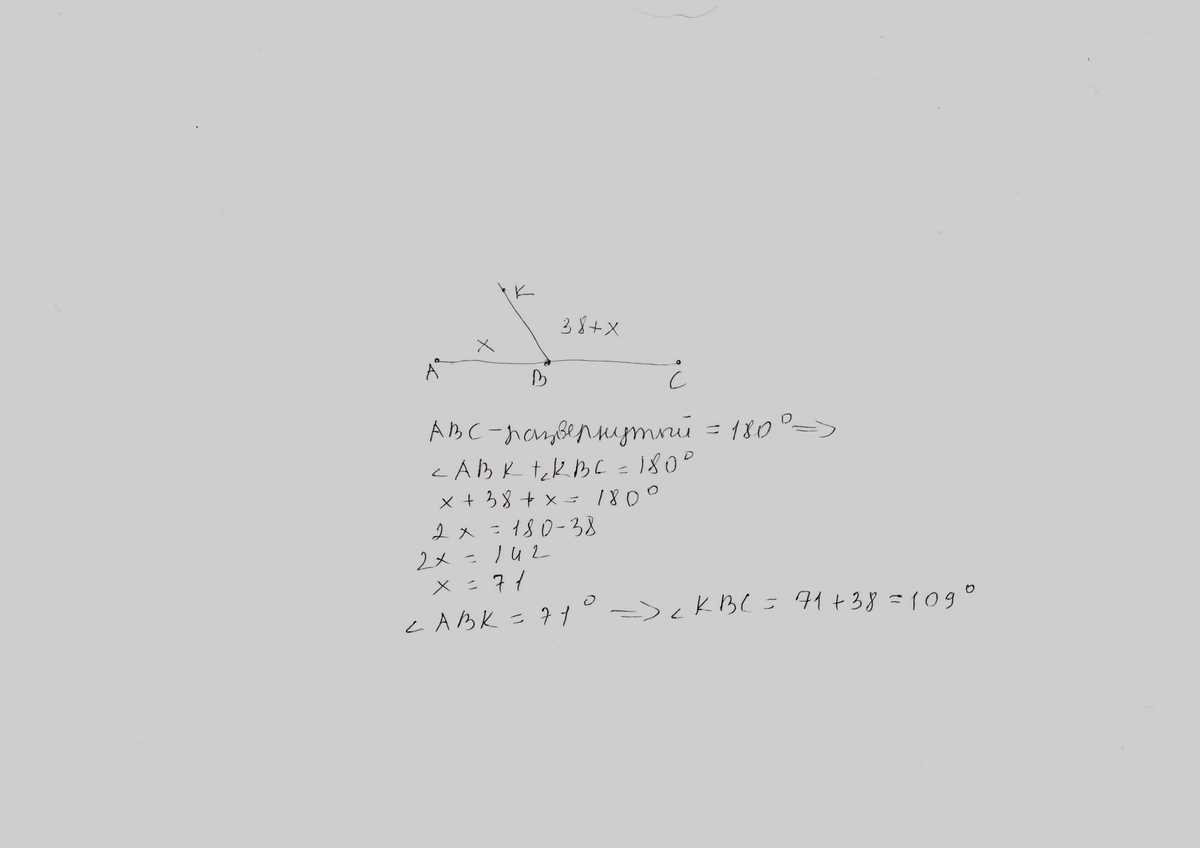 K
38+x
x
A
B
C
ABC - развернутый = 180° =>
∠ABK + ∠KBC = 180°
x + 38 + x = 180°
2x = 180-38
2x = 142
x = 71
∠ABK = 71° => ∠KBC = 71+38 = 109°